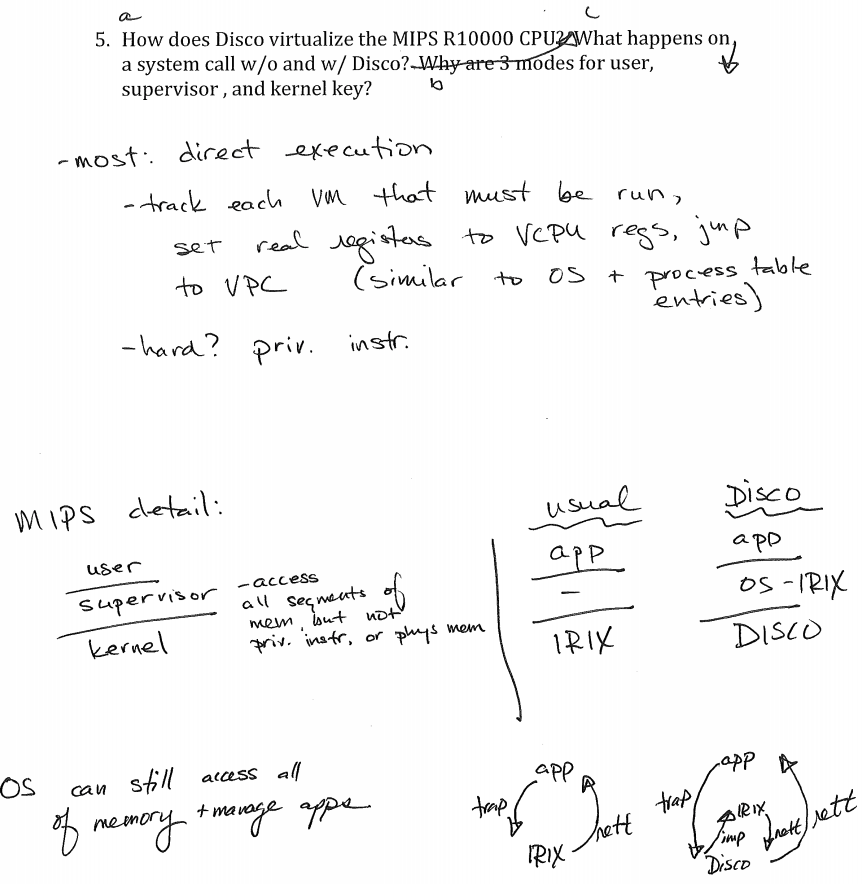 a
c
5. How does Disco virtualize the MIPS R10000 CPU? What happens on
a system call w/o and w/ Disco? Why are 3 modes for user,
supervisor , and kernel key?
b
-most: direct execution
-track each VM that must be run,
set real registers to VCPU regs, jmp
to VPC (similar to OS + process table
entries)
-hard? priv. instr.
MIPS detail:
user
supervisor
kernel
-access
all segments of
mem, but not
priv. instr, or phys mem
usual
app
-
IRIX
Disco
app
OS - IRIX
DISCO
OS can still access all
of memory + manage apps
app
trap
rett
IRIX
app
trap
IRIX
jmp
rett
rett
Disco